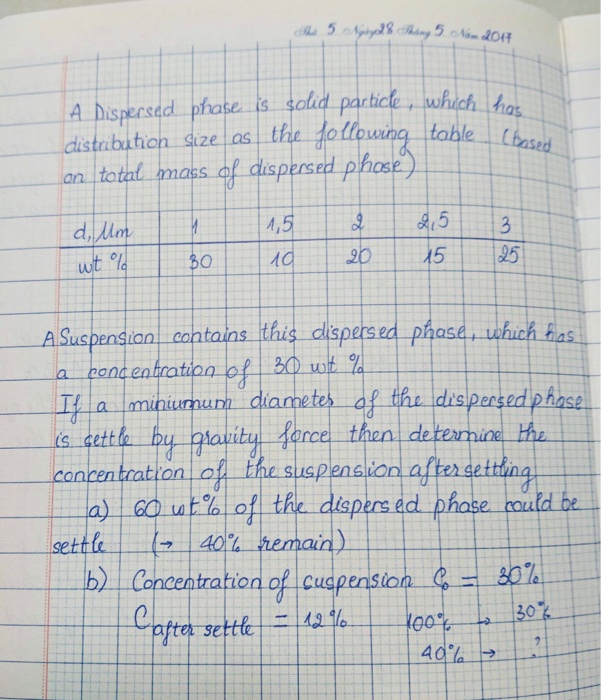 Thứ 5 Ngày 28 Tháng 5 Năm 2017
A Dispersed phase is solid particle, which has
distribution size as the following table (based
on total mass of dispersed phase)
d, Mm 1 1,5 2 2,5 3
wt % 30 10 20 15 25
A Suspension contains this dispersed phase, which has
a concentration of 30 wt %
If a miniumum diameter of the dispersed phase
is settle by gravity force then determine the
concentration of the suspension after settling
a) 60 wt% of the dispersed phase could be
settle (→ 40% remain)
b) Concentration of cuspension C₀ = 30%
C after settle = 12% 100% → 30%
40% → ?